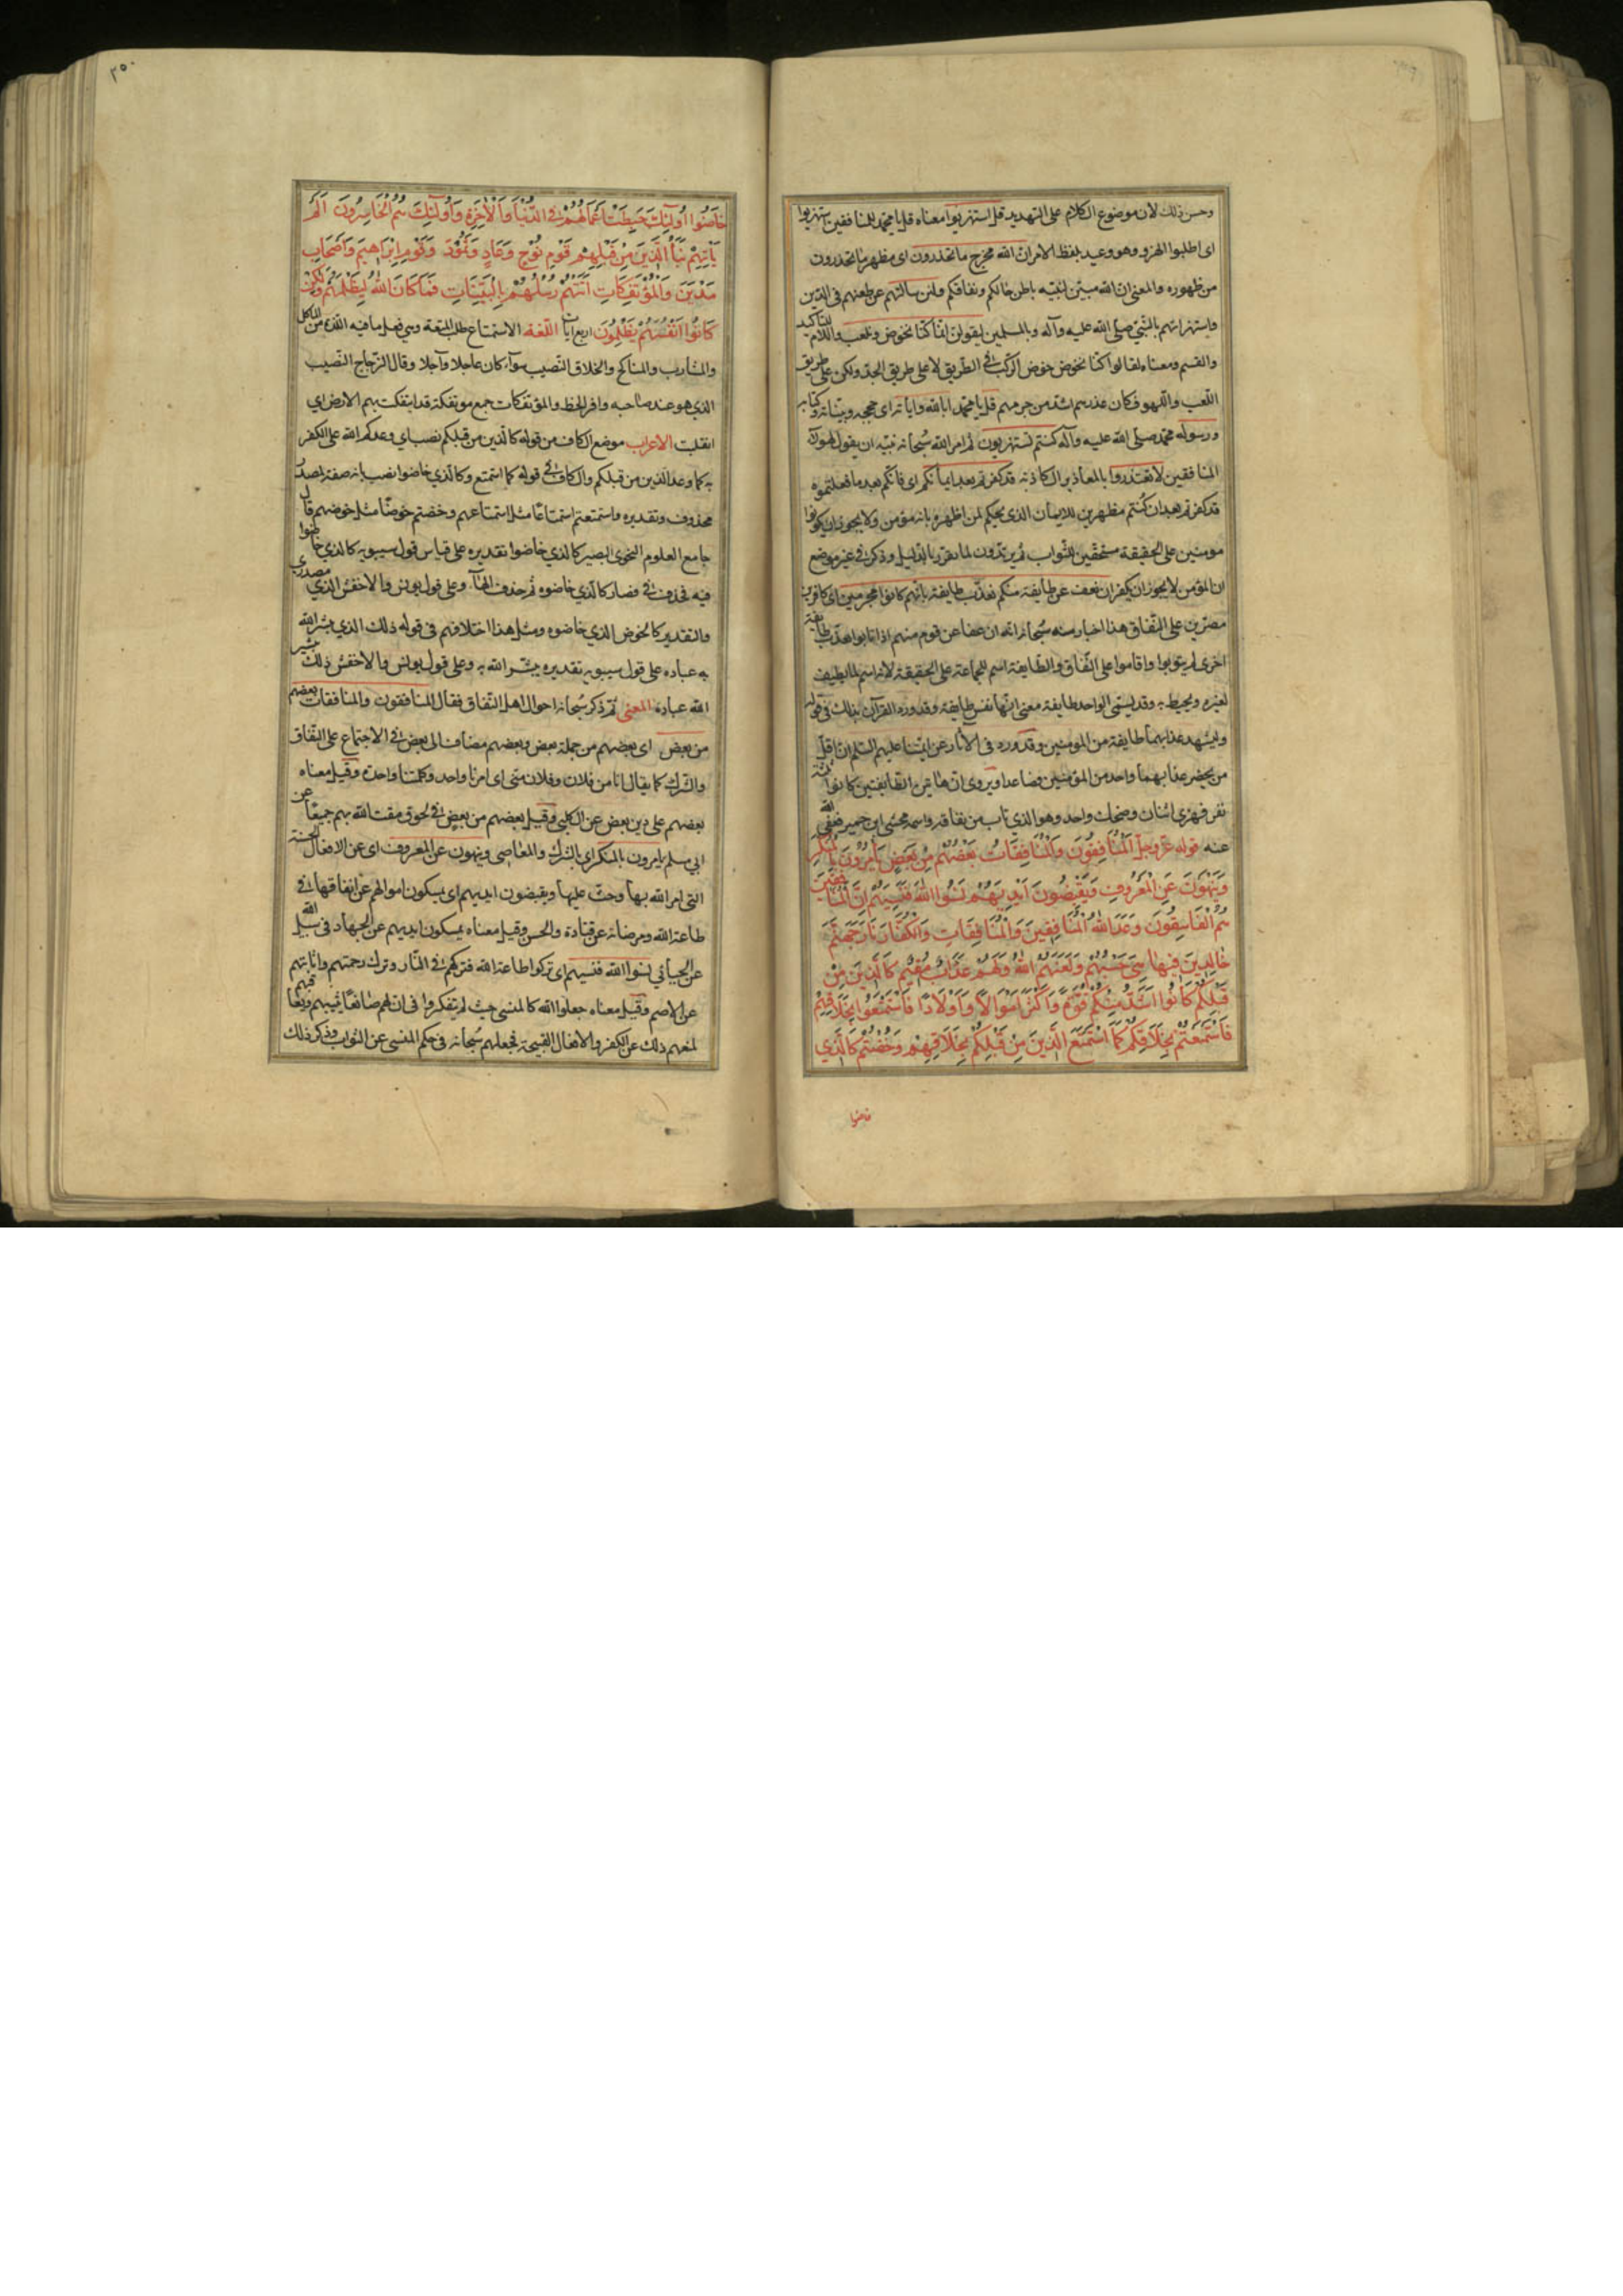 وحسن ذلك لان موضوع الكلام على التهديد قل استهزيوا معناه قل يا محمد للمنافقين استهزيوا
اى اطلبوا الهزو وهو وعيد بلفظ الامر ان الله مخرج ما تحذرون اى مظهر ما تحذرون
من ظهوره والمعنى ان الله مبين لنبيه باطن حالكم ونفاقكم ولئن سالتهم عن طعنهم فى الدين
واستهزائهم بالنبى صلى الله عليه وآله وبالمسلمين ليقولن انما كنا نخوض ونلعب واللام للتاكيد
والقسم ومعناه لقالوا كنا نخوض خوض الركب فى الطريق لا على طريق الجد ولكن على طريق
اللعب واللهو فكان عذرهم اشد من جرمهم قل يا محمد ابالله واياته اى حججه وبيناته وكتابه
ورسوله محمد صلى الله عليه وآله كنتم تستهزيون ثم امر الله سبحانه نبيه ان يقول لهولاء
المنافقين لا تعتذروا بالمعاذير الكاذبة قد كفرتم بعد ايمانكم اى فانكم بعد ما فعلتموه
قد كفرتم بعد ان كنتم مظهرين للايمان الذى يحكم لمن اظهره بانه مؤمن ولا يجوز ان يكونوا
مومنين على الحقيقة مستحقين للثواب ثم يرتدون لما تقرر بالدليل وذكر فى غير موضع
ان المؤمن لا يجوز ان يكفر ان نعف عن طايفة منكم نعذب طايفة بانهم كانوا مجرمين اى كافرين
مصرين على النفاق هذا اخبار منه سبحانه انه ان عفا عن قوم منهم اذا تابوا يعذب طايفة
اخرى لم يتوبوا واقاموا على النفاق والطايفة اسم للجماعة على الحقيقة لانه اسم لما يطيف
لغيره ويحيط به وقد يسمى الواحد طايفة معنى انها نفس طايفة وقد ورد القرآن بذلك فى قوله
وليشهد عذابهما طايفة من المومنين وقد ورد فى الاثار عن ائمتنا عليهم السلم ان اقل
من يحضر عذابهما واحد من المؤمنين فصاعدا ويروى ان هاتين الطايفتين كانوا ثلثة
نفر فهزى اثنان وضحك واحد وهو الذى تاب من نفاقه واسمه مخشى ابن حمير فعفى الله
عنه قوله عز وجل المنافقون والمنافقات بعضهم من بعض يامرون بالمنكر
وينهون عن المعروف ويقبضون ايديهم نسوا الله فنسيهم ان المنافقين
هم الفاسقون وعد الله المنافقين والمنافقات والكفار نار جهنم
خالدين فيها هى حسبهم ولعنهم الله ولهم عذاب مقيم كالذين من
قبلكم كانوا اشد منكم قوة واكثر اموالا واولادا فاستمتعوا بخلاقهم
فاستمتعتم بخلاقكم كما استمتع الذين من قبلكم بخلاقهم وخضتم كالذى
خاضوا
٢٥٠
خاضوا اولئك حبطت اعمالهم فى الدنيا والاخرة واولئك هم الخاسرون الم
ياتهم نبا الذين من قبلهم قوم نوح وعاد وثمود وقوم ابراهيم واصحاب
مدين والمؤتفكات اتتهم رسلهم بالبينات فما كان الله ليظلمهم ولكن
كانوا انفسهم يظلمون اربع آيات اللغة الاستمتاع طلب المتعة وهى فعل ما فيه اللذة من المآكل
والمشارب والمناكح والخلاق النصيب سواء كان عاجلا وآجلا وقال الزجاج النصيب
الذى هو عند صاحبه وافر الحظ والمؤتفكات جمع موتفكة قد ايتفكت بهم الارض اى
انقلبت الاعراب موضع الكاف من قوله كالذين من قبلكم نصب اى وعدكم الله على الكفر
به كما وعد الذين من قبلكم والكاف فى قوله كما استمتع وكالذى خاضوا نصب بانه صفة لمصدر
محذوف وتقديره واستمتعتم استمتاعا مثل استمتاعهم وخضتم خوضا مثل خوضهم قال
جامع العلوم النحوى البصير كالذى خاضوا تقديره على قياس قول سيبويه كالذى خاضوا
فيه فحذف فى فصار كالذى خاضوه ثم حذف الهاء وعلى قول يونس والاخفش الذى مصدرى
والتقدير كالخوض الذى خاضوه ومثل هذا اختلافهم فى قوله ذلك الذى يبشر الله
به عباده على قول سيبويه تقديره يبشر الله به وعلى قول يونس والاخفش ذلك تبشير
الله عباده المعنى ثم ذكر سبحانه احوال اهل النفاق فقال المنافقون والمنافقات بعضهم
من بعض اى بعضهم من جملة بعض وبعضهم مضاف الى بعض فى الاجتماع على النفاق
والشرك كما يقال انا من فلان وفلان منى اى امرنا واحد وكلمتنا واحدة وقيل معناه
بعضهم على دين بعض عن الكلبى وقيل بعضهم من بعض فى لحوق مقت الله بهم جميعا عن
ابى مسلم يامرون بالمنكر اى بالشرك والمعاصى وينهون عن المعروف اى عن الافعال الحسنة
التى امر الله بها وحث عليها ويقبضون ايديهم اى يمسكون اموالهم عن انفاقها فى
طاعة الله ومرضاته عن قتادة والحسن وقيل معناه يمسكون ايديهم عن الجهاد فى سبيل الله
عن الجبائى نسوا الله فنسيهم اى تركوا طاعة الله فتركهم فى النار وترك رحمتهم واثابتهم
عن الاصم وقيل معناه جعلوا الله كالمنسى حيث لم يتفكروا فى ان لهم صانعا يثيبهم ويعاقبهم
لمنعهم ذلك عن الكفر والافعال القبيحة فجعلهم سبحانه فى حكم المنسى عن الثواب وذكر ذلك